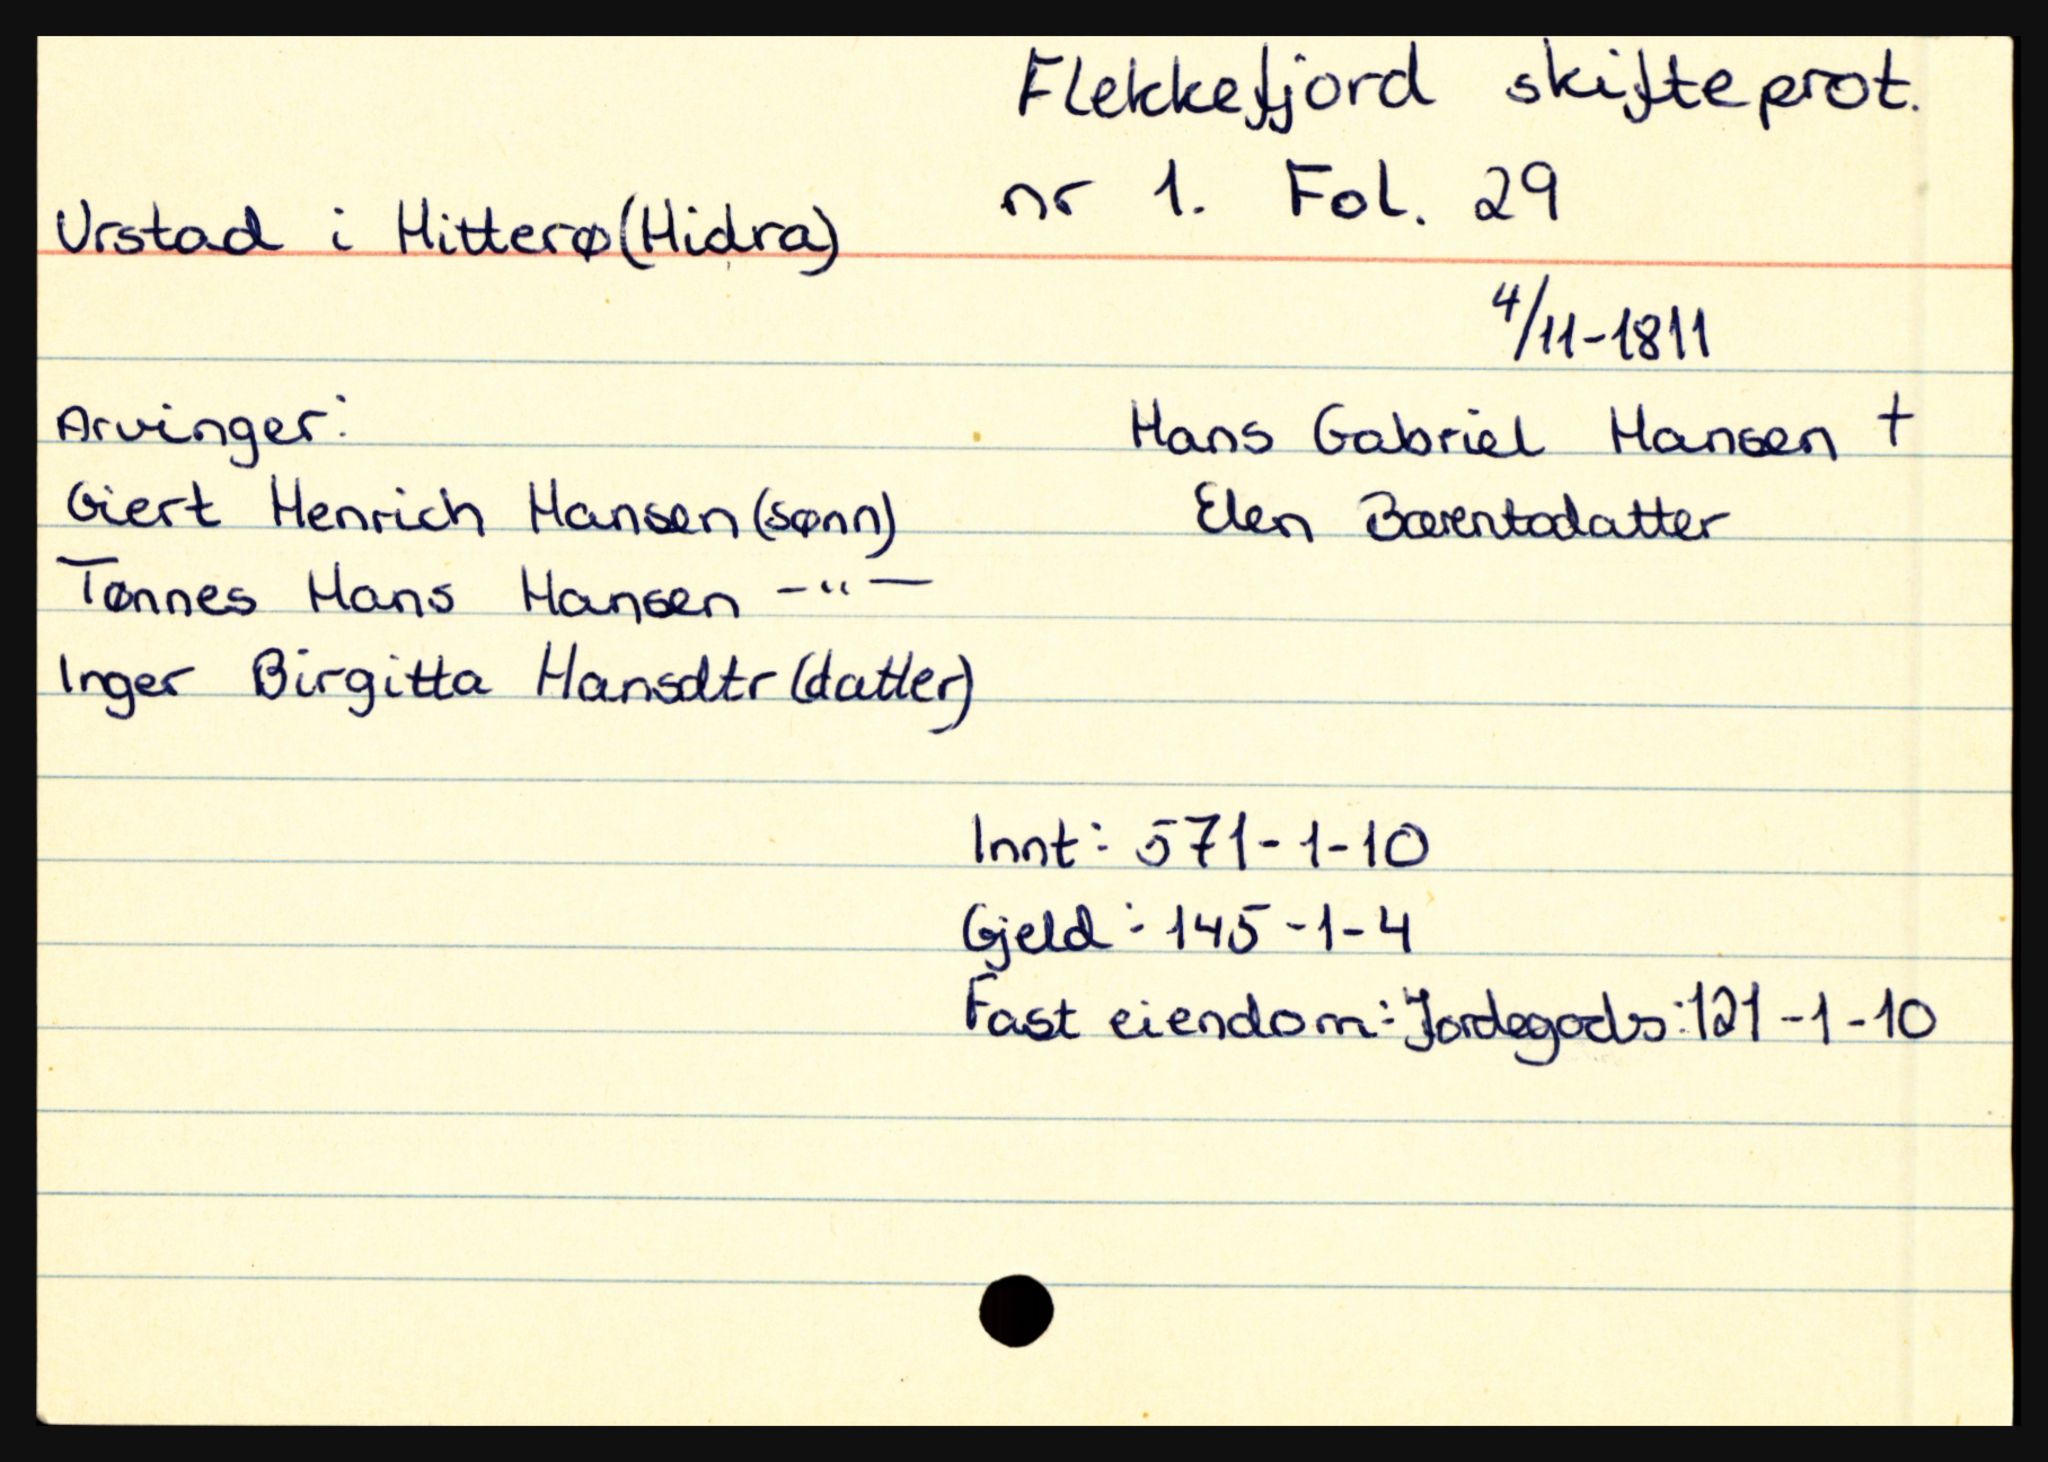 Flekkefjord skifteprot.
nr 1. Fol. 29
Urstad i Hitterø (Hidra)
4/11-1811
Arvinger:
Giert Henrich Hansen (sønn)
Tønnes Hans Hansen -"-
Inger Birgitta Hansdtr (datter)
Hans Gabriel Hansen †
Elen Bærentsdatter
Innt: 571-1-10
Gjeld: 145-1-4
Fast eiendom: Jordegods: 121-1-10